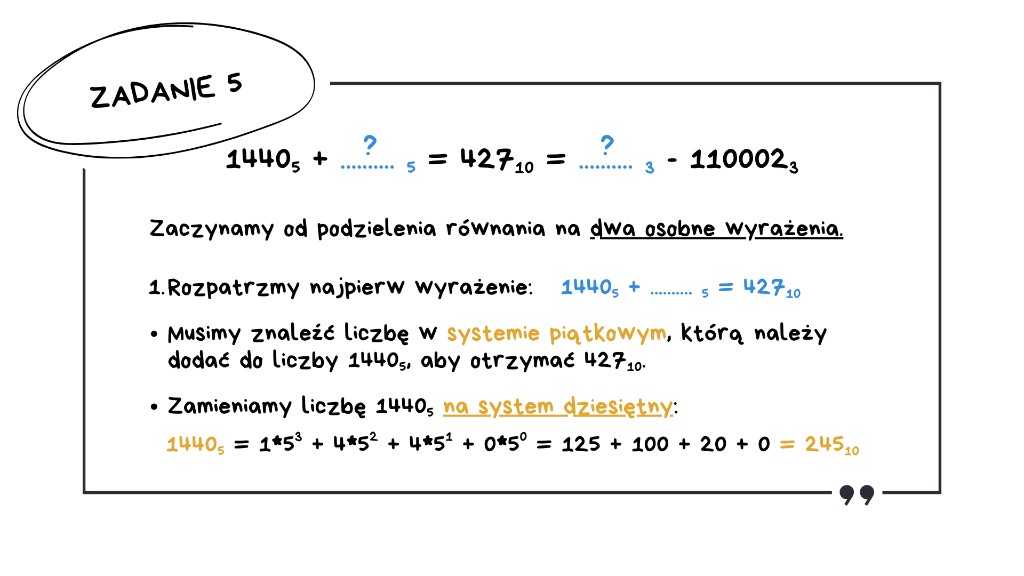 ZADANIE 5
1440₅ + ? .......... ₅ = 427₁₀ = ? .......... ₃ - 110002₃
Zaczynamy od podzielenia równania na dwa osobne wyrażenia.
1. Rozpatrzmy najpierw wyrażenie: 1440₅ + .......... ₅ = 427₁₀
• Musimy znaleźć liczbę w systemie piątkowym, którą należy
dodać do liczby 1440₅, aby otrzymać 427₁₀.
• Zamieniamy liczbę 1440₅ na system dziesiętny:
1440₅ = 1*5³ + 4*5² + 4*5¹ + 0*5⁰ = 125 + 100 + 20 + 0 = 245₁₀